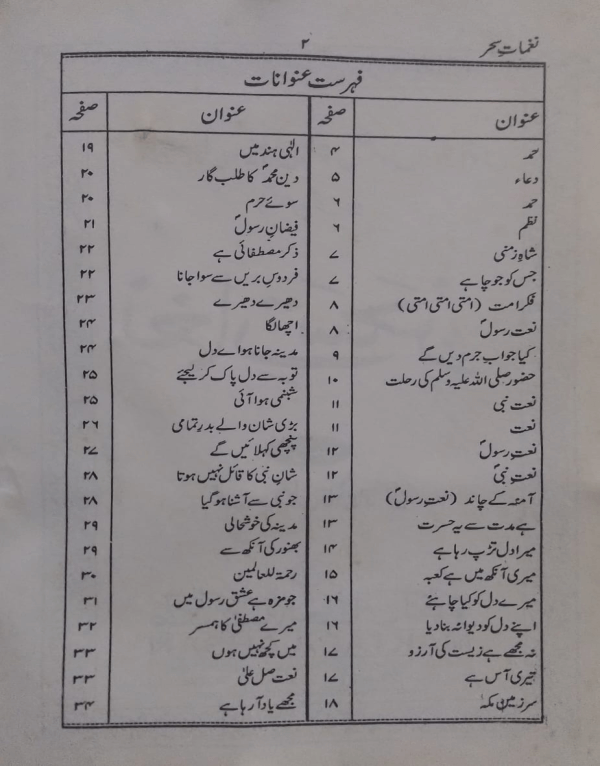 نغماتِ سحر ۲
فہرست عنوانات
عنوان صفحہ عنوان صفحہ
حمد ۴ الٰہی ہند میں ۱۹
دعاء ۵ دین محمدؐ کا طلب گار ۲۰
حمد ۶ سوئے حرم ۲۰
نظم ۶ فیضانِ رسولؐ ۲۱
شاہِ زمنی ۷ ذکر مصطفائی ہے ۲۲
جس کو جو چاہے ۷ فردوسِ بریں سے سوا جانا ۲۲
فکر امت (امتی امتی امتی) ۸ دھیرے دھیرے ۲۳
نعت رسولؐ ۸ اچھا لگا ۲۴
کیا جواب جرم دیں گے ۹ مدینہ جانا ہو اے دل ۲۴
حضور صلی اللہ علیہ وسلم کی رحلت ۱۰ توبہ سے دل پاک کر لیجئے ۲۵
نعت نبی ۱۱ شبنمی ہوا آئی ۲۵
نعت ۱۱ بڑی شان والے بدرِ تمامی ۲۶
نعتِ رسولؐ ۱۲ پنچھی کہلائیں گے ۲۷
نعتِ نبیؐ ۱۲ شانِ نبی کا قائل نہیں ہوتا ۲۸
آمنہ کے چاند (نعتِ رسولؐ) ۱۳ جو نبی سے آشنا ہو گیا ۲۸
ہے مدت سے یہ حسرت ۱۳ مدینہ کی خوشحالی ۲۹
میرا دل تڑپ رہا ہے ۱۴ بھنور کی آنکھ سے ۲۹
میری آنکھ میں ہے کعبہ ۱۵ رحمۃ للعالمین ۳۰
میرے دل کو کیا چاہئے ۱۶ جو مزہ ہے عشق رسول میں ۳۱
اپنے دل کو دیوانہ بنا دیا ۱۶ میرے مصطفیٰ کا ہمسر ۳۲
نہ مجھے ہے زیست کی آرزو ۱۷ میں کچھ نہیں ہوں ۳۳
تیری آس ہے ۱۷ نعت صل علیٰ ۳۳
سرزمین مکہ ۱۸ مجھے یاد آ رہا ہے ۳۴